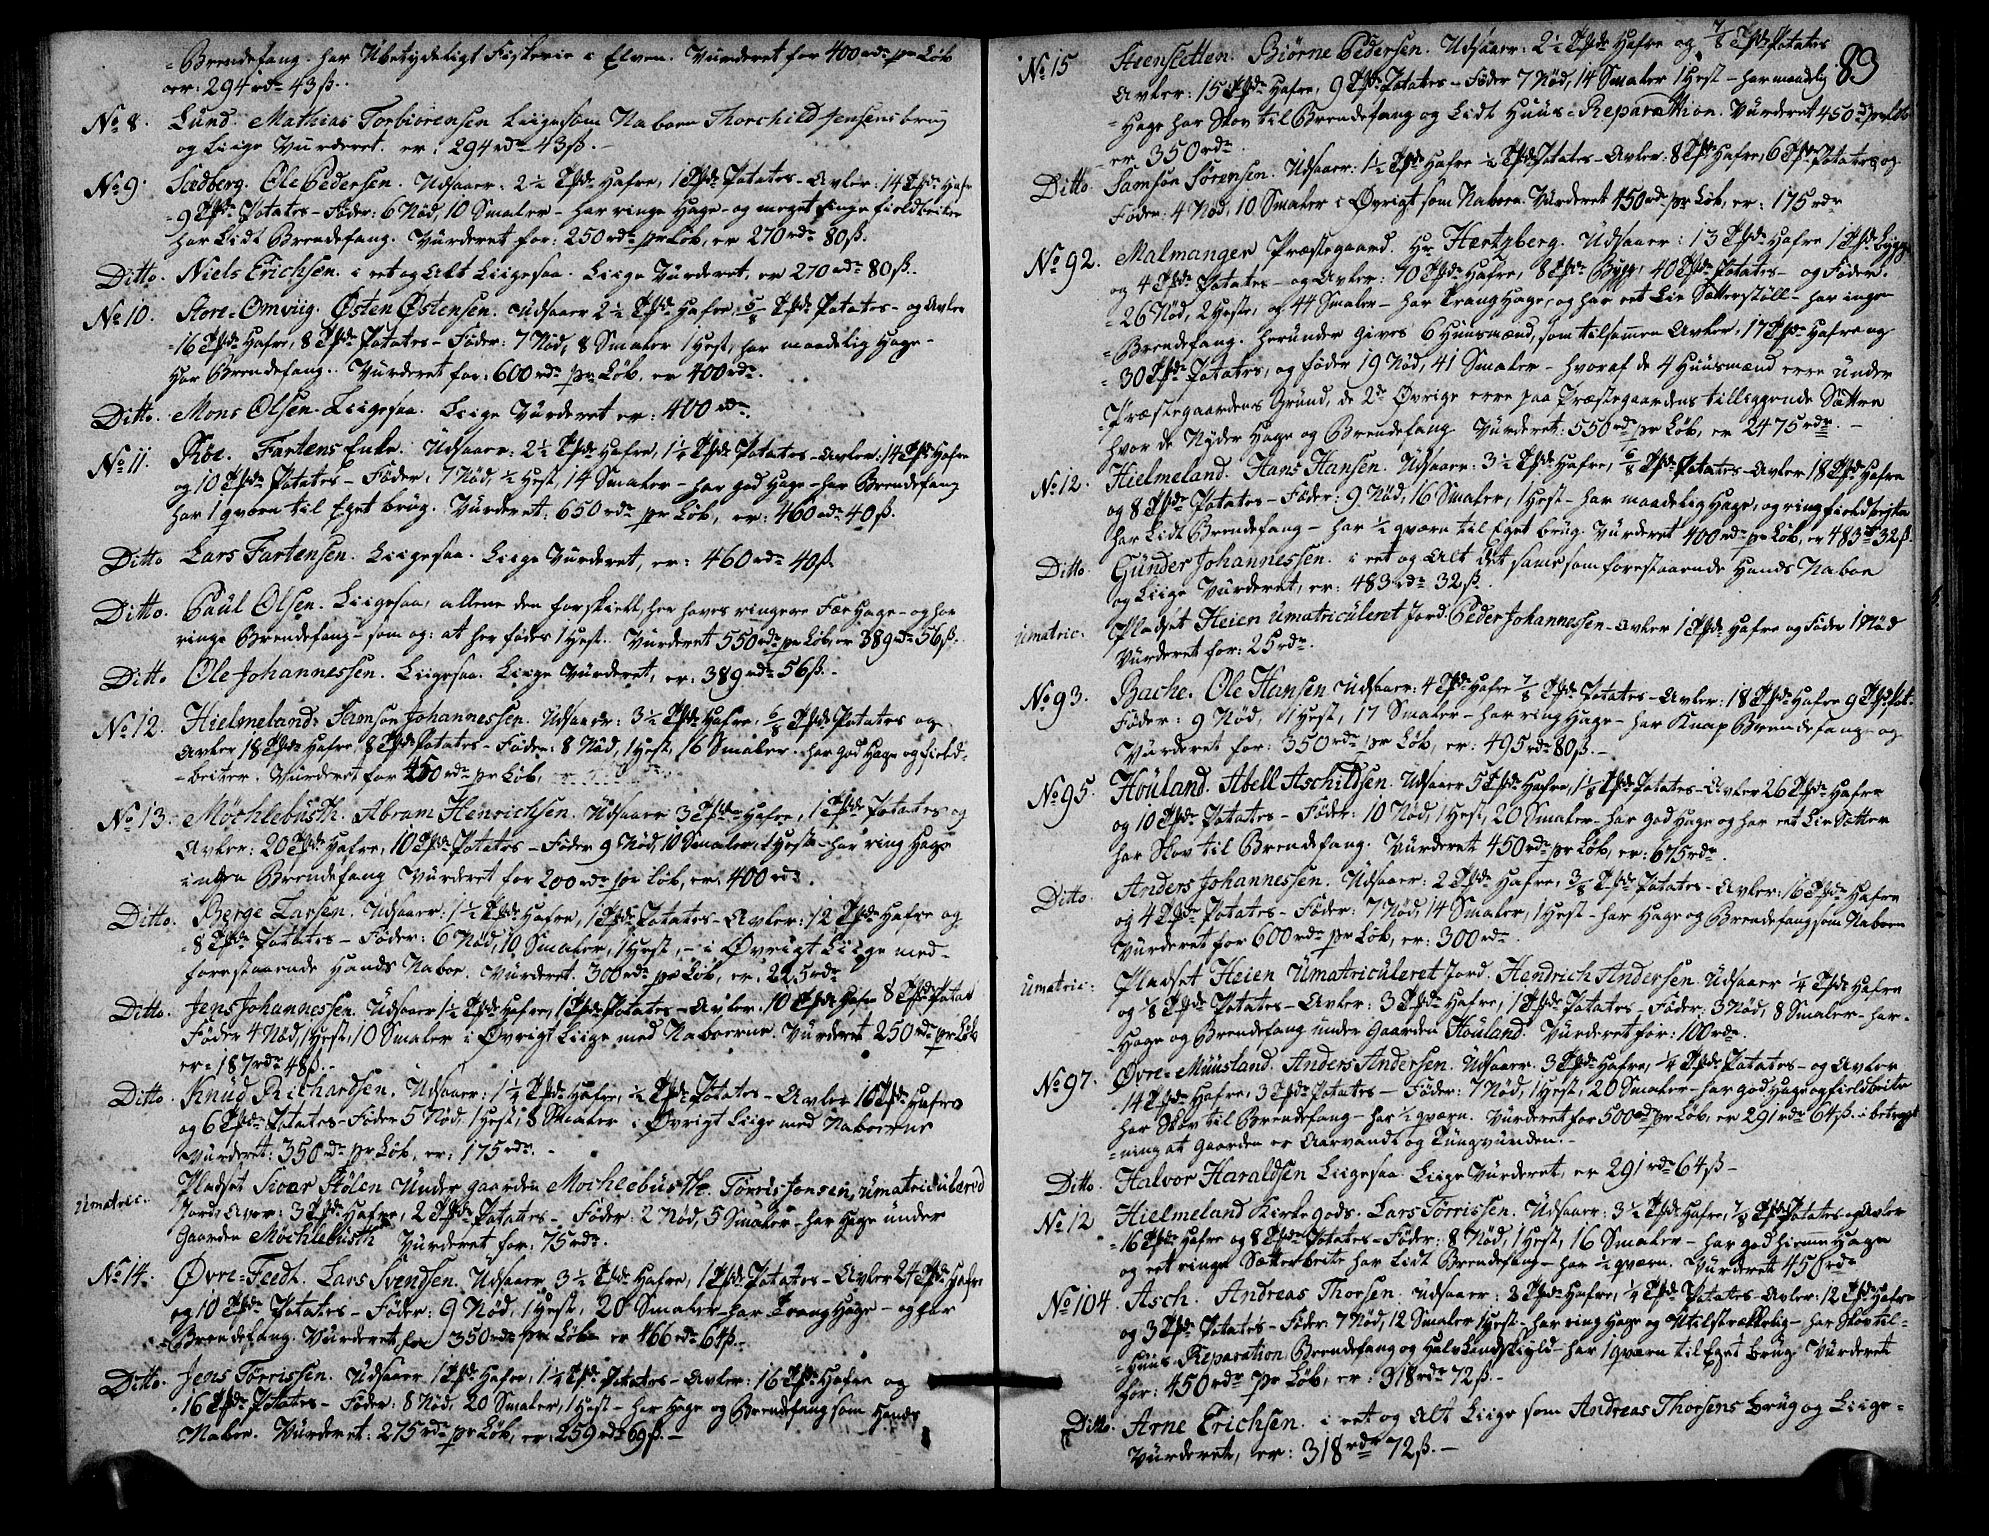 -Brendefang. har Ubetydeligt Fiskerie i Elven. Vurderet for 400 rdr pr Løb
er: 294 rdr 43 ß.
No 8. Lund. Mathias Torbiorensen Liigesom Naboen Thorchild Jensens brug
og Liige Vurderet. er: 294 rdr 43 ß.
No 9. Sædberg. Ole Pedersen. Udsaaer: 2½ Tdr Hafre, 1 Tdr Potates - Avler: 14 Tdr Hafre
9 Tdr Potates - Føder: 6 Nød, 10 Smaler - har ringe Hage - og meget ringe fieldbeiter
har Lidt Brendefang. Vurderet for: 250 rdr pr Løb, er 270 rdr 80 ß.
Ditto. Niels Erichsen. i et og Alt Liigesaa. Liige Vurderet, er 270 rdr 80 ß.
No 10. Store-Omvüg. Østen Østensen. Udsaaer 2½ Tdr Hafre, 5/8 Tdr Potates - og Avler
16 Tdr Hafre, 8 Tdr Potates - Føder: 7 Nød, 8 Smaler 1 Hest, har maadelig Hage -
Har Brendefang. Vurderet for: 600 rdr pr Løb, er 400 rdr.
Ditto. Mons Olsen. Liigesaa. Liige Vurderet er: 400 rdr.
No 11. Røe. Fartens Enke. Udsaaer: 2½ Tdr Hafre, 1¼ Tdr Potates - Avler: 14 Tdr Hafre
og 10 Tdr Potates - Føder: 7 Nød, ½ Hest, 14 Smaler - har god Hage - har Brendefang
har 1 qværn til Eget brüg. Vurderet: 650 rdr pr Løb, er: 460 rdr 40 ß.
Ditto Lars Fartensen. Liigesaa. Liige Vurderet, er: 460 rdr 40 ß.
Ditto. Paül Olsen. Liigesaa, allene den forskiell, her haves ringere Fæe Hage - og har
ringe Brendefang - som og: at her fødes 1 Hest. Vurderet 550 rdr pr Løb, er 389 rdr 56 ß.
Ditto Ole Johannessen. Liigesaa. Liige Vurderet, er: 389 rdr 56 ß.
No 12. Hielmeland: Samson Johannessen. Udsaaer: 3½ Tdr Hafre, 6/8 Tdr Potates og
Avler 18 Tdr Hafre, 8 Tdr Potates - Føder: 8 Nød, 1 Hest, 16 Smaler - har god Hage og field-
-beiter. Vurderet for 450 rdr pr Løb,
No 13. Møchlebüsth. Abram Henrichsen. Udsaaer 3 Tdr Hafre, 1 Tdr Potates og
Avler: 20 Tdr Hafre, 10 Tdr Potates - Føder 9 Nød, 10 Smaler, 1 Hest - har ring Hage
ingen Brendefang Vurderet for 200 rdr pr Løb, er: 400 rdr.
Ditto. Berge Larsen. Udsaaer: 1½ Tdr Hafre, 1 Tdr Potates - Avler: 12 Tdr Hafre og
8 Tdr Potates - Føder: 6 Nød, 10 Smaler, 1 Hest, - i Øvrigt Liige med
forestaaende Hands Naboe. Vurderet. 300 rdr pr Løb, er: 225 rdr
Ditto. Jens Johannessen. Udsaaer 1½ Tdr Hafre, 1 Tdr Potates - Avler. 10 Tdr Hafre 8 Tdr Potat
Føder 4 Nød, 1 Hest, 10 Smaler i Øvrigt Liige med Naboerne. Vurderet 250 rdr pr Løb
er: 187 rdr 48 ß.
Ditto. Knud Richardsen. Udsaaer: 1¼ Tdr Hafre, ½ Tdr Potates - Avler 16 Tdr Hafre
og 6 Tdr Potates - Føder 5 Nød, 1 Hest, 8 Smaler i Øvrigt Liige med Naboerne
Vurderet: 350 rdr pr Løb, er: 175 rdr.
Umatric. Pladset Sivar Stølen Under gaarden Mochlebüsth. Tørris Jonsen, umatriculered
Jord, Avler: 3 Tdr Hafre, 2 Tdr Potates - Føder: 2 Nød, 5 Smaler - har Hage under
Gaarden Møchlebüsth Vurderet for: 75 rdr.
No 14. Øvre-Feedt. Lars Svendsen. Udsaaer 3½ Tdr Hafre, 1 Tdr Potates - Avler 24 Tdr Hafre
og 10 Tdr Potates - Føder: 9 Nød, 1 Hest, 20 Smaler - har Trang Hage - og har
Brendefang. Vurderet for 350 rdr pr Løb er 466 rdr 64 ß.
Ditto. Jens Tørrissen. Udsaaer 1 Tdr Hafre, 1¼ Tdr Potates - Avler: 16 Tdr Hafre og
16 Tdr Potates - Føder: 8 Nød, 20 Smaler, 1 Hest - har Hage og Brendefang som Hands
Naboe. Vurderet: 275 rdr pr Løb, er: 259 rdr 69 ß.
83
No 15 Steensletten. Biørne Pedersen. Udsaaer: 2½ Tdr Hafre og 7/8 Tdr Potates
Avler: 15 Tdr Hafre, 9 Tdr Potates - Føder 7 Nød, 14 Smaler 1 Hest - har maadlig
Hage har Skov til Brendefang og Lidt Huus-Reparattion. Vurderet 450 rdr pr Løb
er 350 rdr.
Ditto. Samson Sørensen. Udsaaer: 1½ Tdr Hafre ½ Tdr Potates - Avler: 8 Tdr Hafre, 6 Tdr Potates og
Føder: 4 Nød, 10 Smaler i Øvrigt som Naboen. Vurderet 450 rdr pr Løb, er: 175 rdr
No 92. Malmanger Præstegaard. Hr Hertzberg. Udsaaer: 13 Tdr Hafre 1 Tdr bygg
og 4 Tdr Potates - og Avler: 70 Tdr Hafre, 8 Tdr Bygg, 40 Tdr Potates - og Føder.
26 Nød, 2 Heste, og 44 Smaler - har Trang Hage, og har eet Lie Sætterstøll - har inge
Brendefang. herunder gives 6 Huusmænd, som tilsamen Avler, 17 Tdr Hafre og
30 Tdr Potates, og føder 19 Nød, 41 Smaler - hvoraf de 4 Huusmænd ere under
Præstegaardens Grund, de 2de Øvrige ere paa Præstegaardens tilliggende Sættre
hvor de Nyder Hage og Brendefang Vurderet: 550 rdr pr Løb, er 2475 rdr.
No 12. Hielmeland. Hans Hansen. Udsaaer: 3½ Tdr Hafre, 6/8 Tdr Potates - Avler 18 Tdr Hafre
og 8 Tdr Potates - Føder: 9 Nød, 16 Smaler, 1 Hest - har maadelig Hage, og ring fieldbeite
har Lidt Brendefang - har ½ qværn til Eget brug. Vurderet 400 rdr pr Løb, er 483 rd 32 ß.
Ditto. Gunder Johannessen. i eet og Alt det same som forestaaende Hands Naboe
og Liige Vurderet, er: 483 rdr 32 ß.
Umatric. Pladset Heien umatriculeret Jord. Peder Johannessen - Avler 1 Tdr Hafre og Føder 1 Nød
Vurderet for: 25 rdr.
No 93. Bache. Ole Hansen Udsaaer: 4 Tdr Hafre 7/8 Tdr Potates - Avler: 18 Tdr Hafre 9 Tdr Pot.
Føder: 9 Nød, 1 Hest, 17 Smaler - har ring Hage - har Knap Brendefang - og
Vurderet for: 350 rdr pr Løb, er: 495 rdr 80 ß.
No 95. Houland. Abell Aschildsen. Udsaaer 5 Tdr Hafre, 1 1/8 Tdr Potates - Avler 26 Tdr Hafre
og 10 Tdr Potates - Føder: 10 Nød, 1 Hest, 20 Smaler - har god Hage og har eet Lie Sætter
har Skov til Brendefang. Vurderet 450 rdr pr Løb, er: 675 rdr.
Ditto. Anders Johannessen. Udsaaer: 2 Tdr Hafre, 3/8 Tdr Potates - Avler: 16 Tdr Hafre
og 4 Tdr Potates - Føder: 7 Nød, 14 Smaler, 1 Hest - har Hage og Brendefang som Naboen
Vurderet for 600 rdr pr Løb, er: 300 rdr.
Umatric: Pladset Heien Umatriculeret Jord. Hendrich Andersen. Udsaaer ¼ Tdr Hafre
og 1/8 Tdr Potates - Avler: 3 Tdr Hafre, 1 Tdr Potates - Føder: 3 Nød, 8 Smaler - har
Hage og Brendefang under Gaarden Houland. Vurderet for: 100 rdr.
No 97. Øvre-Muusland. Anders Andersen. Udsaaer. 3 Tdr Hafre, ¼ Tdr Potates - og Avler
14 Tdr Hafre, 3 Tdr Potates - Føder: 7 Nød, 1 Hest, 20 Smaler - har god Hage og fieldbeite
har Skov til Brendefang - har ½ qværn. Vurderet for 500 rdr pr Løb, er 291 rdr 64 ß. i betragt
-ning at gaarden er Aarvandt og Tungvunden.
Ditto. Halvor Haraldsen Liigesaa. Liige Vurderet, er 291 rdr 64 ß
No 12 Hielmeland Kirkegods. Lars Tørrissen. Udsaaer: 3½ Tdr Hafre, 7/8 Tdr Potates og Avler
16 Tdr Hafre og 8 Tdr Potates - Føder: 8 Nød, 1 Hest, 16 Smaler - har god hieme Hage
og eet ringe Sætterbeite har Lidt Brendefang - har ½ qværn. Vurderet 450 rdr
No 104. Asch. Andreas Thorsen. Udsaaer: 3 Tdr Hafre, ¼ Tdr Potates - Avler: 12 Tdr Hafre
og 3 Tdr Potates - Føder: 7 Nød, 12 Smaler 1 Hest - har ring Hage og Utilstrækkelig - har Skov til
Huus-Reparation Brendefang og halv Landskyld - har 1 qværn til Eget brug Vurderet
for: 450 rdr pr Løb, er: 318 rdr 72 ß.
Ditto. Arne Erichsen. i eet og Alt Liige som Andreas Thorsens brug og Liige
Vurderet, er: 318 rdr 72 ß.